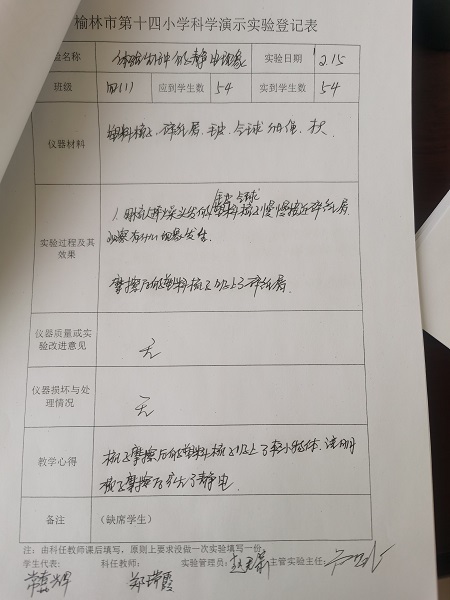 榆林市第十四小学科学演示实验登记表
验名称 体验多种的静电现象 实验日期 12.15
班级 四(1) 应到学生数 54 实到学生数 54
仪器材料
塑料梳子、碎纸屑、毛皮、气球
实验过程及其
效果
1.用梳过干燥头发的塑料梳子慢慢接近碎纸屑
观察有什么现象发生.
摩擦后的塑料梳子吸上了碎纸屑.
仪器质量或实
验改进意见
无
仪器损坏与处
理情况
无
教学心得
梳子摩擦后的塑料梳子吸上了轻小物体.说明
梳子摩擦后产生了静电
备注 (缺席学生)
注：由科任教师课后填写，原则上要求没做一次实验填写一份
学生代表: 科任教师: 实验管理员: 主管实验主任:
郑瑞霞